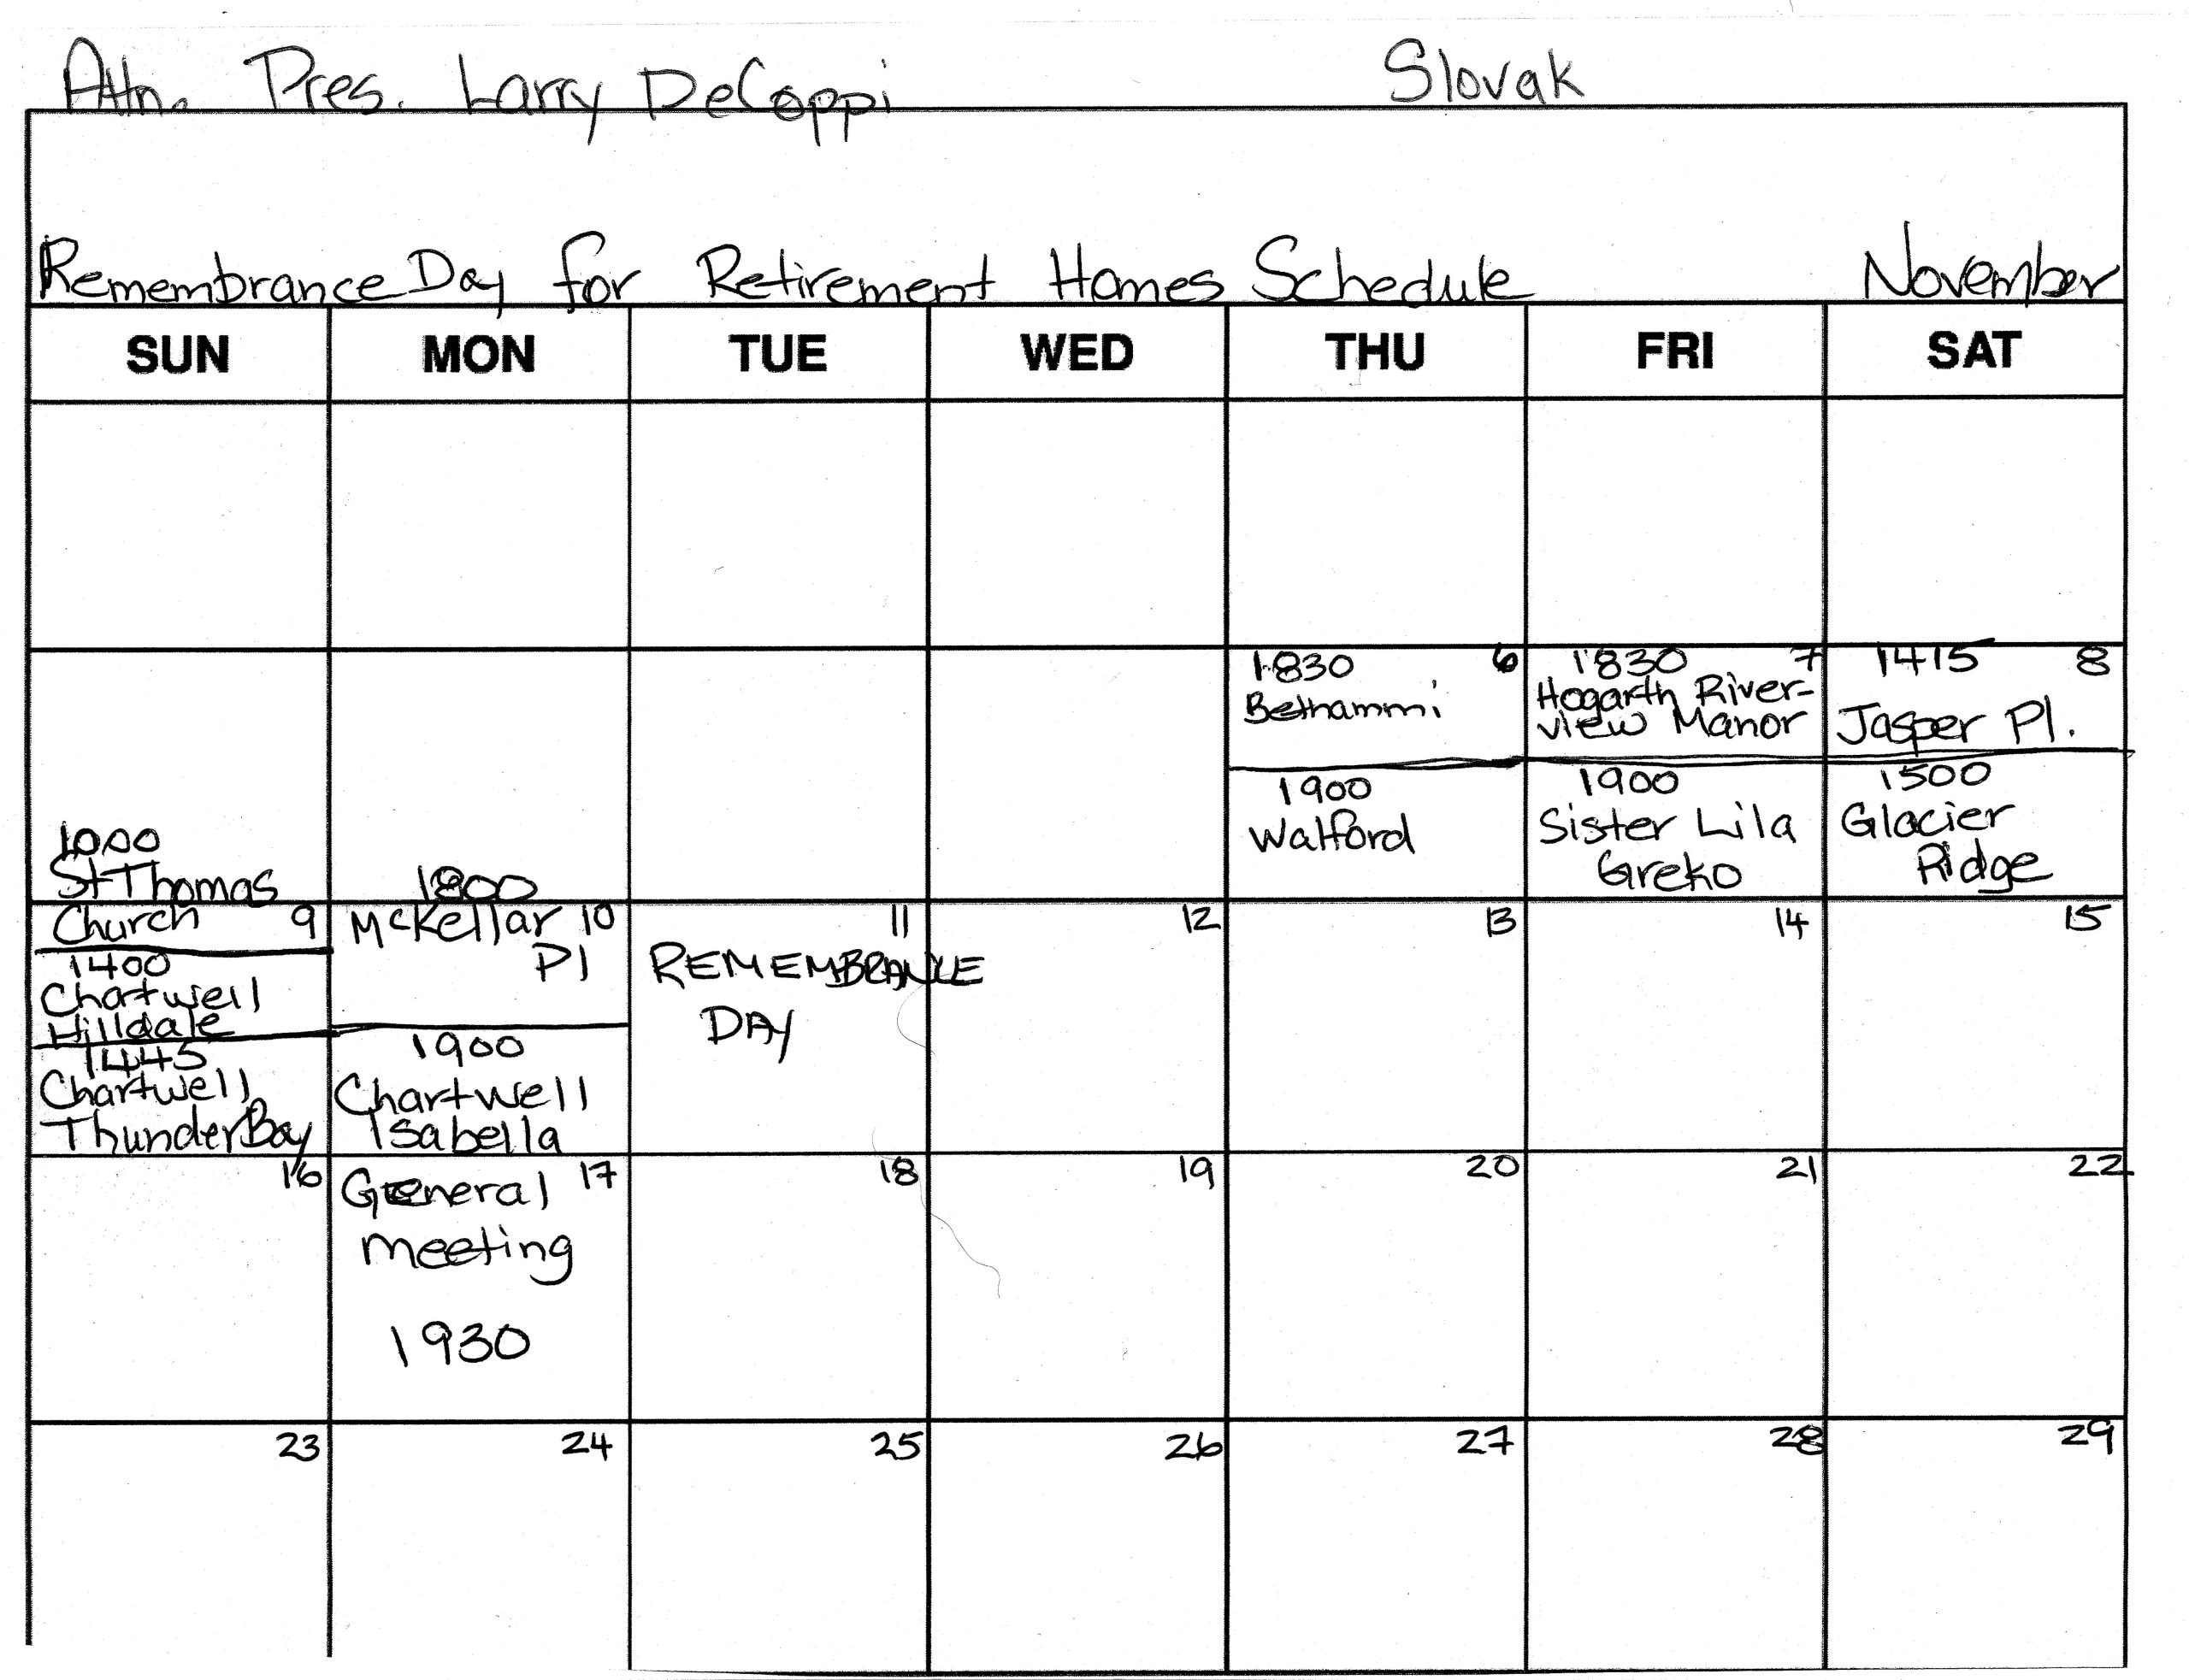 Attn. Pres. Larry DeCoppi Slovak
Remembrance Day for Retirement Homes Schedule November
SUN MON TUE WED THU FRI SAT
1830 6
Bethammi
1900
Walford
1830 7
Hogarth River-
view Manor
1900
Sister Lila
Greko
1415 8
Jasper Pl.
1500
Glacier
Ridge
1000
St Thomas
Church 9
1400
Chartwell
Hilldale
1445
Chartwell
Thunder Bay
1800
McKellar 10
Pl
1900
Chartwell
Isabella
11
REMEMBRANCE
DAY
12
13
14
15
16
General 17
meeting
1930
18
19
20
21
22
23
24
25
26
27
28
29